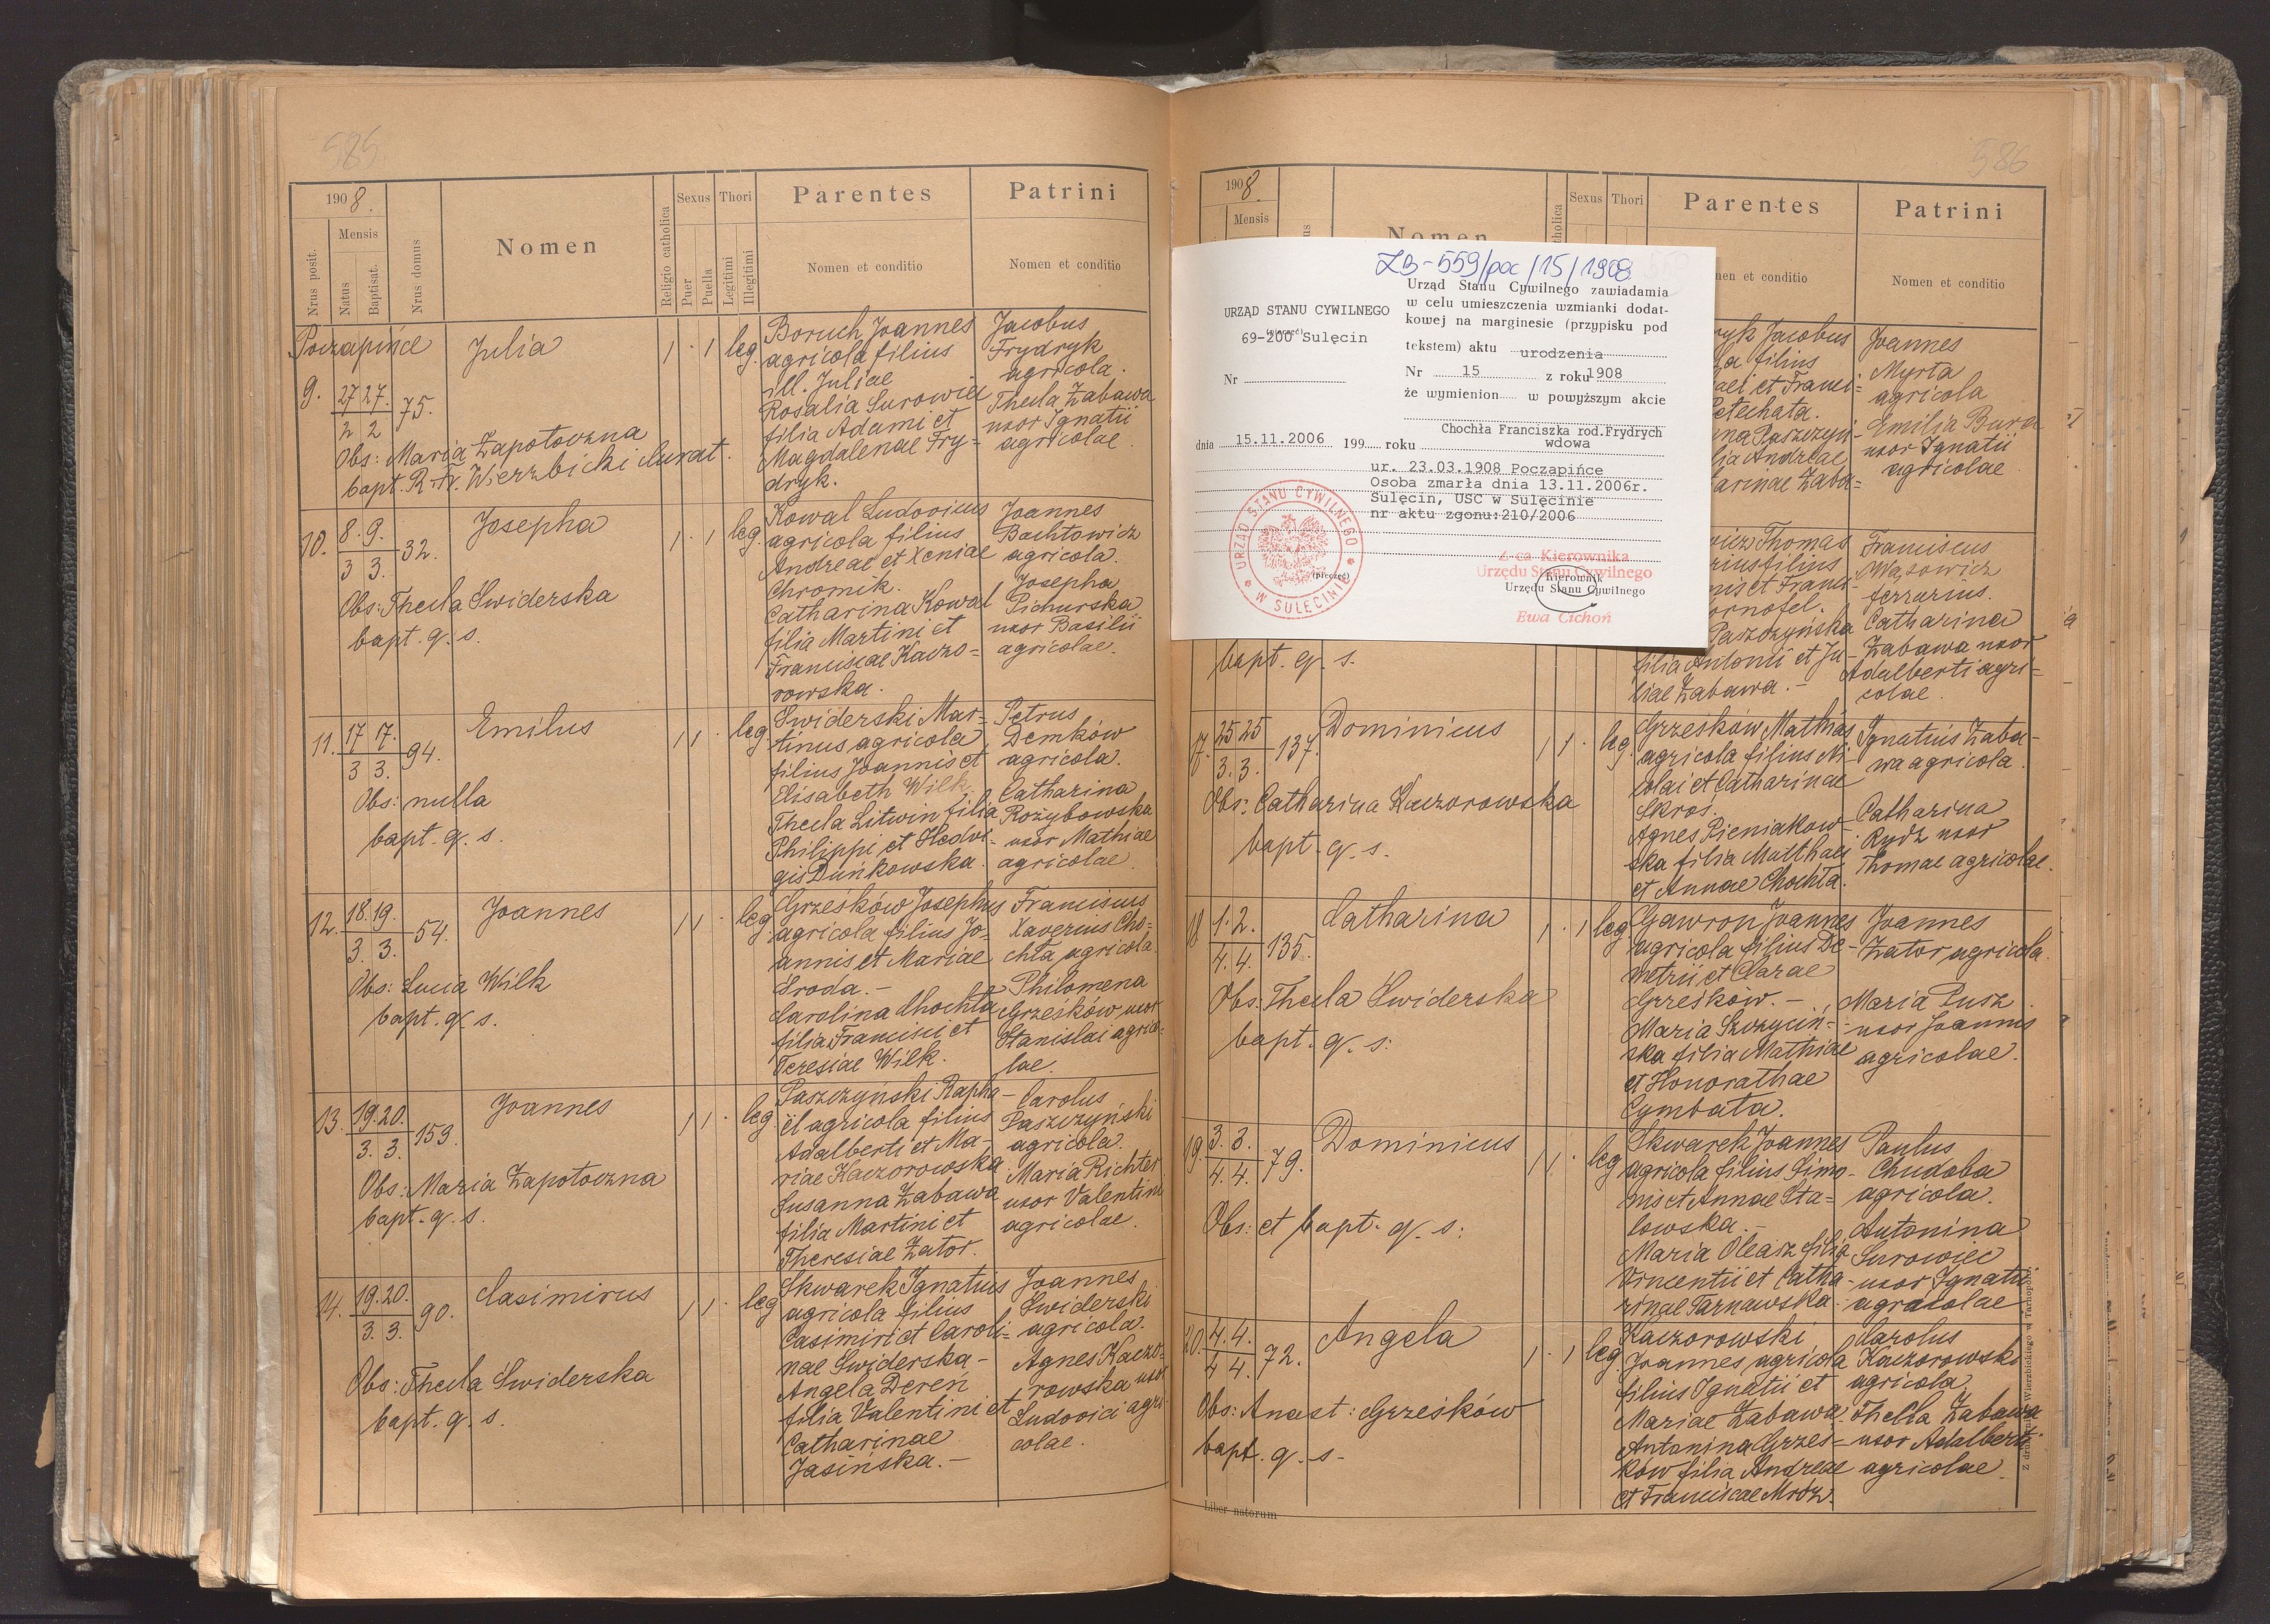 585
1908.
Nrus posit.
Mensis
Natus
Baptisat.
Nrus domus
Nomen
Religio catholica
Sexus
Puer
Puella
Thori
Legitimi
Illegitimi
Parentes
Nomen et conditio
Patrini
Nomen et conditio
Poczapińce
9. 27 27. 75.
2 2
Julia
1 . 1 leg.
Obs: Maria Zapotoczna
bapt. R. Fr. Wierzbicki Curat.
Boruch Joannes
agricola filius
ill. Juliae
Rosalia Surowiec
filia Adami et
Magdalenae Fry=
dryk.
Jacobus
Frydryk
agricola.
Thecla Zabawa
uxor Ignatii
agricolae.
10. 8. 9. 32.
3 3.
Josepha
1 . 1 leg.
Obs: Thecla Swiderska
bapt. q. s.
Kowal Ludovicus
agricola filius
Andreae et Xeniae
Chromik.
Catharina Kowal
filia Martini et
Franciscae Kaczo=
rowska.
Joannes
Bachtowicz
agricola.
Josepha
Pichurska
uxor Basilii
agricolae.
11. 17 17. 94.
3 3.
Emilus
1 1 . leg.
Obs: nulla
bapt. q. s.
Swiderski Mar=
tinus agricola
filius Joannis et
Elisabeth Wilk.
Thecla Litwin filia
Philippi et Hedwi-
gis Dunkowska.
Petrus
Demków
agricola.
Catharina
Rozybowska
uxor Mathiae
agricolae.
12. 18. 19. 54.
3 3.
Joannes
1 1 . leg.
Obs: Lucia Wilk
bapt. q. s.
Grzesków Josephus
agricola filius Jo-
annis et Mariae
Sroda. -
Carolina Chochła
filia Francisci et
Teresiae Wilk.
Franciscus
Xaverius Cho=
chła agricola.
Philomena
Grzesków uxor
Stanislai agrico-
lae.
13. 19. 20. 159.
3. 3.
Joannes
1 1 . leg.
Obs: Maria Zapotoczna
bapt. q. s.
Paszczyński Rapha-
ël agricola filius
Adalberti et Ma-
riae Kaczorowska.
Susanna Zabawa
filia Martini et
Theresiae Zator.
Carolus
Paszczyński
agricola.
Maria Richter
uxor Valentini
agricolae.
14. 19. 20. 90.
3. 3.
Casimirus
1 1 . leg.
Obs: Thecla Swiderska
bapt. q. s.
Skwarek Ignatius
agricola filius
Casimiri et Caroli=
nae Swiderska -
Angela Dereń
filia Valentini et
Catharinae
Jasińska. -
Joannes
Swiderski
agricola.
Agnes Kaczo=
rowska uxor
Ludovici agri-
colae.
586
1908.
Mensis
Nomen
Sexus
Thori
Parentes
Patrini
Nomen et conditio
ZB-559/poc/15/1908
URZĄD STANU CYWILNEGO
(pieczęć)
69-200 Sulęcin
Nr
Urząd Stanu Cywilnego zawiadamia
w celu umieszczenia wzmianki dodat-
kowej na marginesie (przypisku pod
tekstem) aktu urodzenia
Nr 15 z roku 1908
że wymienion w powyższym akcie
Chochła Franciszka rod.Frydrych
dnia 15.11.2006 199 roku wdowa
ur. 23.03.1908 Poczapińce
Osoba zmarła dnia 13.11.2006r.
Sulęcin, USC w Sulęcinie
nr aktu zgonu:210/2006
URZĄD STANU CYWILNEGO
W SULĘCINIE
(pieczęć)
Z-ca Kierownika
Urzędu Stanu Cywilnego
Kierownik
Urzędu Stanu Cywilnego
Ewa Cichoń
Jacobus
filius
Joannes
Myrta
agricola
Emilia Bura
uxor Ignatii
agricolae
Thomas
bapt. q. s.
Paszczyńska
filia Antonii et Ju-
liae Zabawa. -
Franciscus
Wąsowicz
ferrarius.
Catharina
Zabawa uxor
Adalberti agri=
colae.
17. 25 25 137.
3. 3.
Dominicus
1 1 . leg.
Obs: Catharina Kaczorowska
bapt. q. s.
Grzesków Mathias
agricola filius Ni-
colai et Catharinae
Skroś.
Agnes Pieniakow-
ska filia Matthaei
et Annae Chochła.
Ignatius Zaba-
wa agricola.
Catharina
Rydz uxor
Thomae agricolae.
18 1. 2. 135.
4. 4.
Catharina
1 . 1 leg.
Obs: Thecla Swiderska
bapt. q. s:
Gawron Joannes
agricola filius De-
metrii et Clarae
Grzesków. -
Maria Szczyciń-
ska filia Mathiae
et Honorathae
Cymbała.
Joannes
Zator agricola.
Maria Pusz
uxor Joannis
agricolae.
19. 3. 3. 79.
4. 4.
Dominicus
1 1 . leg
Obs: et bapt. q. s:
Skwarek Joannes
agricola filius Simo-
nis et Annae Sta=
lowska. -
Maria Oleasz filia
Vincentii et Catha-
rinae Tarnawska.
Paulus
Chudoba
agricola.
Antonina
Surowiec
uxor Ignatii
agricolae
20. 4. 4. 72.
4 4.
Angela
1 . 1 leg
Obs: Anast: Grzesków
bapt. q. s-
Kaczorowski
Joannes, agricola
filius Ignatii et
Mariae Zabawa.
Antonina Grześ=
ków filia Andreae
et Franciscae Mróz.
Carolus
Kaczorowski
agricola
Thecla Zabawa
uxor Adalberti
agricolae.
Liber natorum